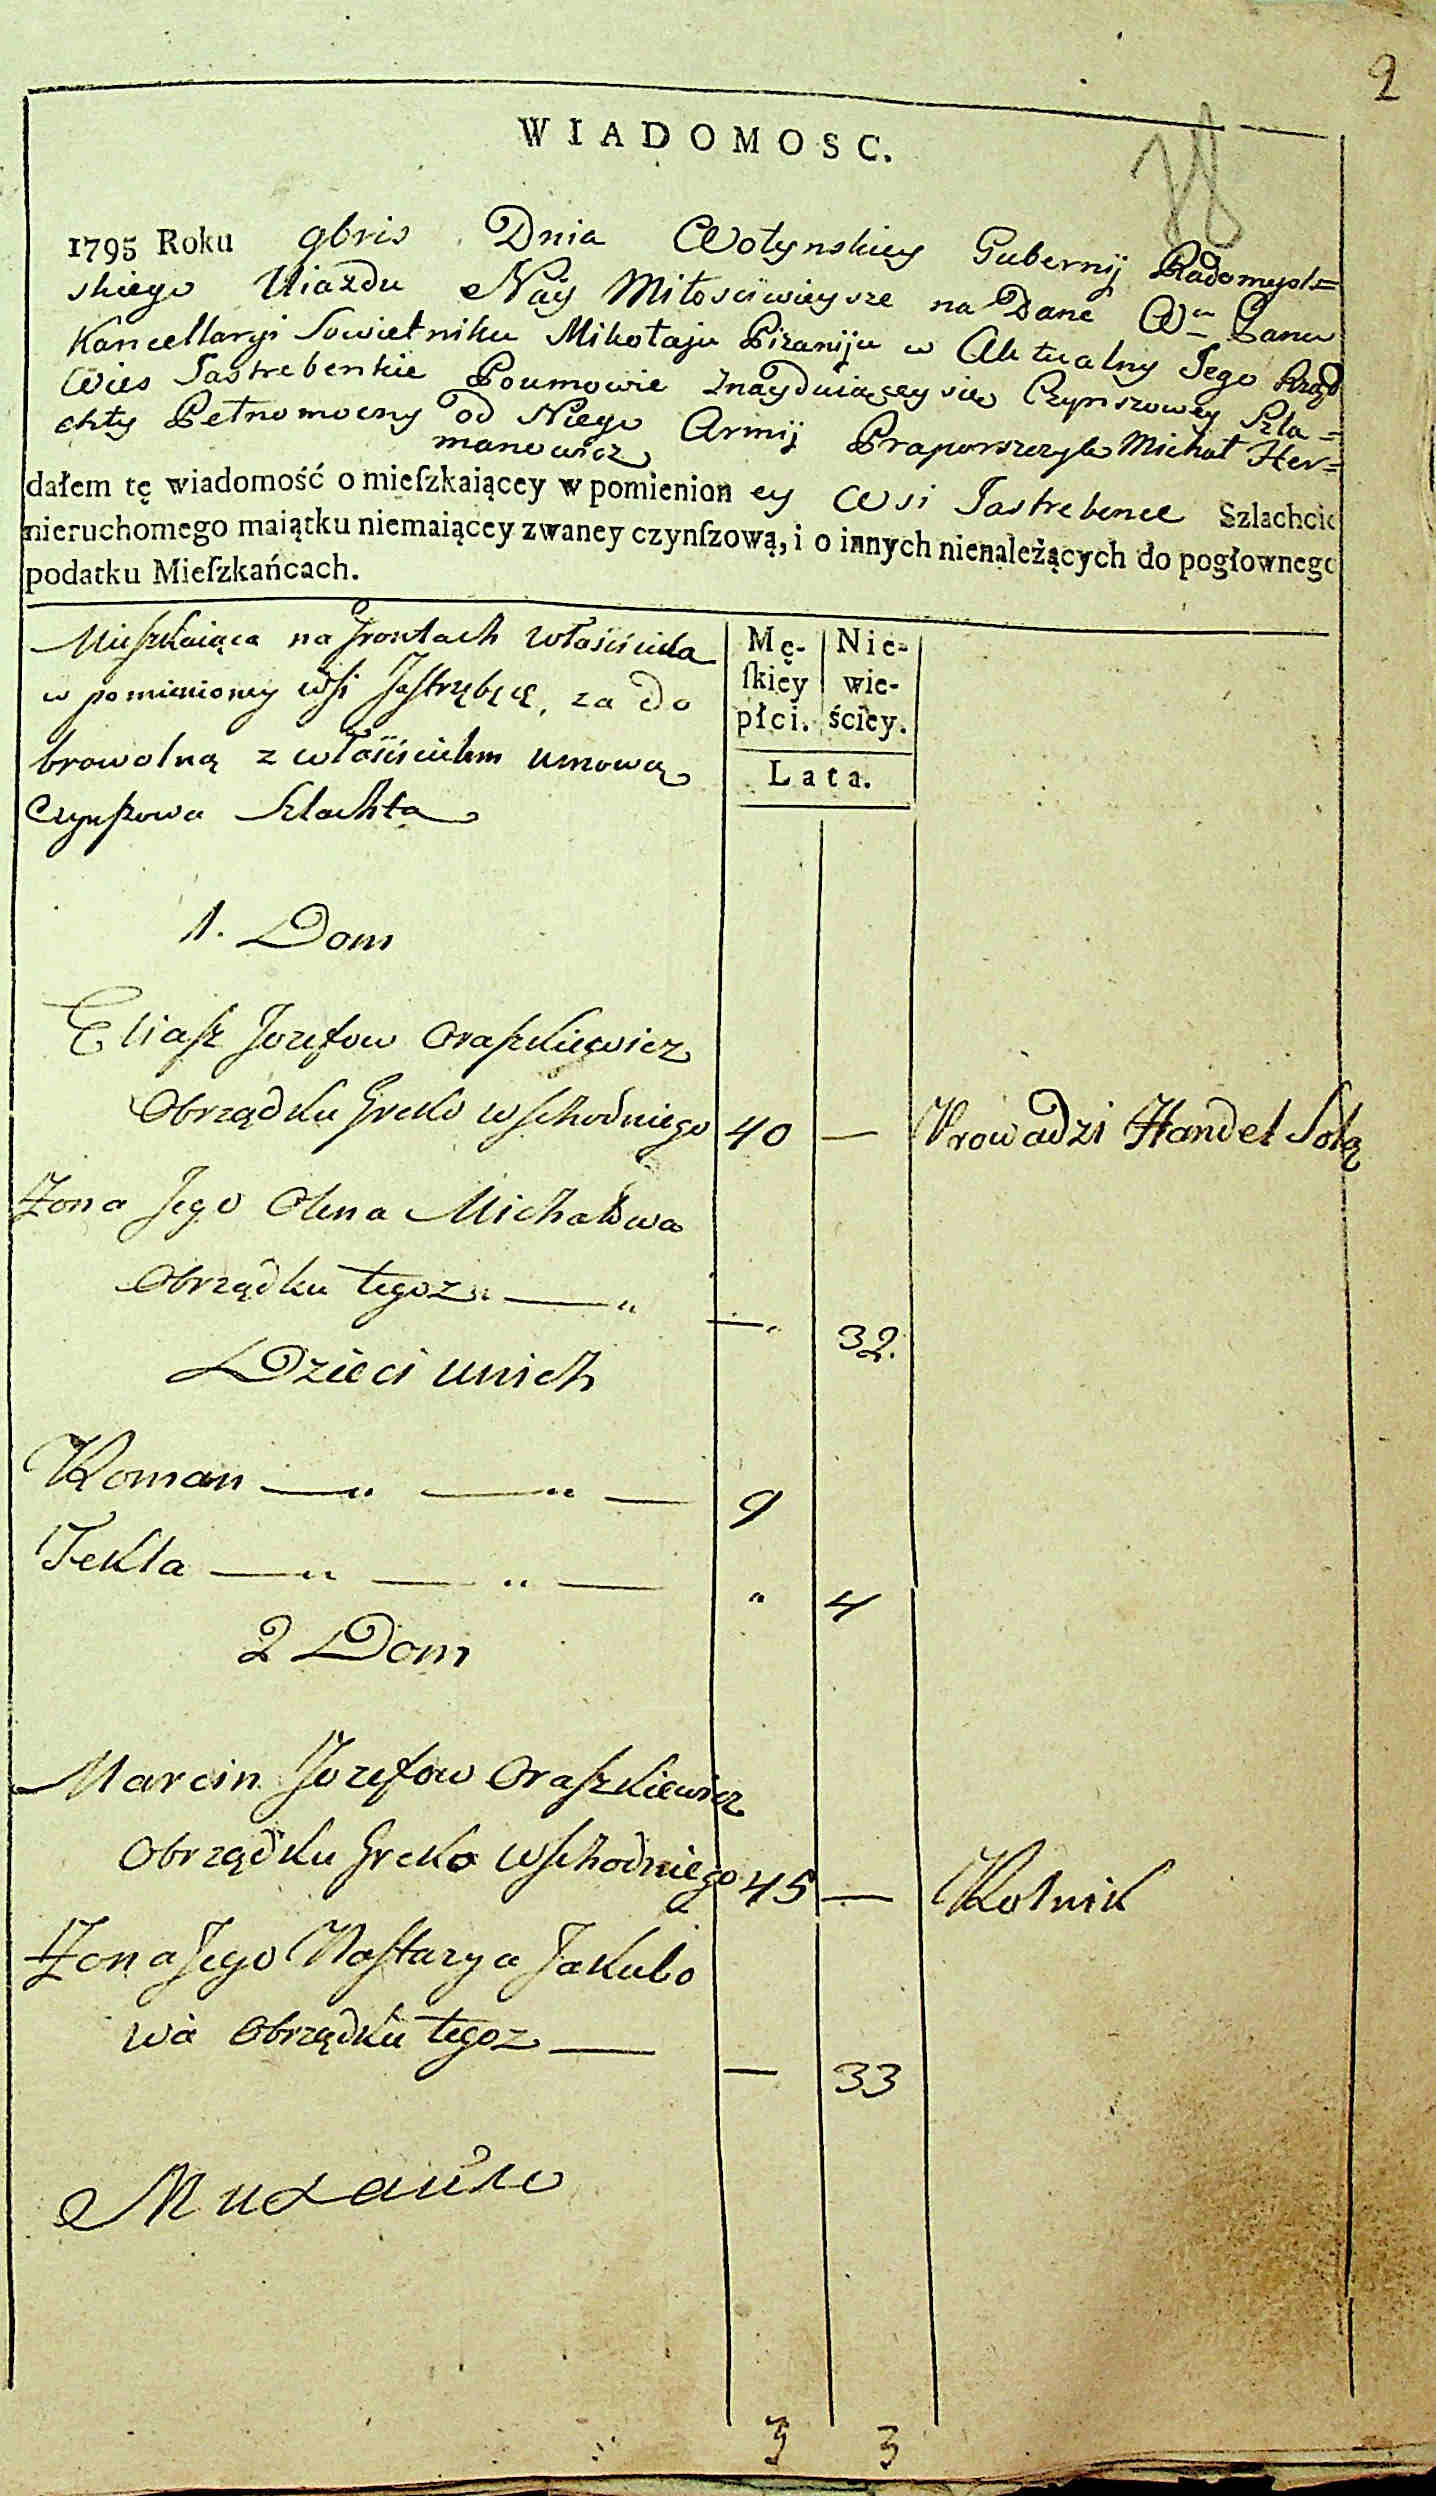 2
78
WIADOMOSC.
1795 Roku 9bris Dnia Wołynskiey Gubernij Radomysl=
skiego Uiazdu Nay Miłosciwieysze na Dane Wu Panu
Kancellaryi Sowietniku Mikołaju Pizaniju w Aktualny Jego Rząd
Wies Jastrebenkie Poumowie znayduiącey się Czynszowey Szla=
chty Pełnomocny od Niego Armij Praporszczyk Michał Her=
manowicz
dałem tę wiadomość o mieſzkaiącey w pomienion ey Wsi Jastrebence Szlachcic
nieruchomego maiątku niemaiącey zwaney czynſzową, i o innych nienależących do pogłownego
podatku Mieſzkańcach.
Mieſzkaiąca na Grontach Właściciela
w pomienioney Wſi Jaſtrębęę, za do
browolną z właścicielem umową
Czynſzowa Szlachta
Mę- Nie-
ſkiey wie-
płci. ściey.
Lata.
1. Dom
Eliaſz Jozefow Oraſzkiewicz
Obrządku Greko wſchodniego 40 — Prowadzi Handel Solą
Żona Jego Olena Michałowa
Obrządku tegoz „ — „ — „ 32.
Dzieci unich
Roman — „ — „ — 9
Tekla — „ — „ — „ 4
2 Dom
Marcin Jozefow Oraſzkiewicz
Obrządku Greko wſchodniego 45 — Rolnik
Żona Jego Naſtazya Jakubo
wa Obrządku tegoz — — 33
3 3